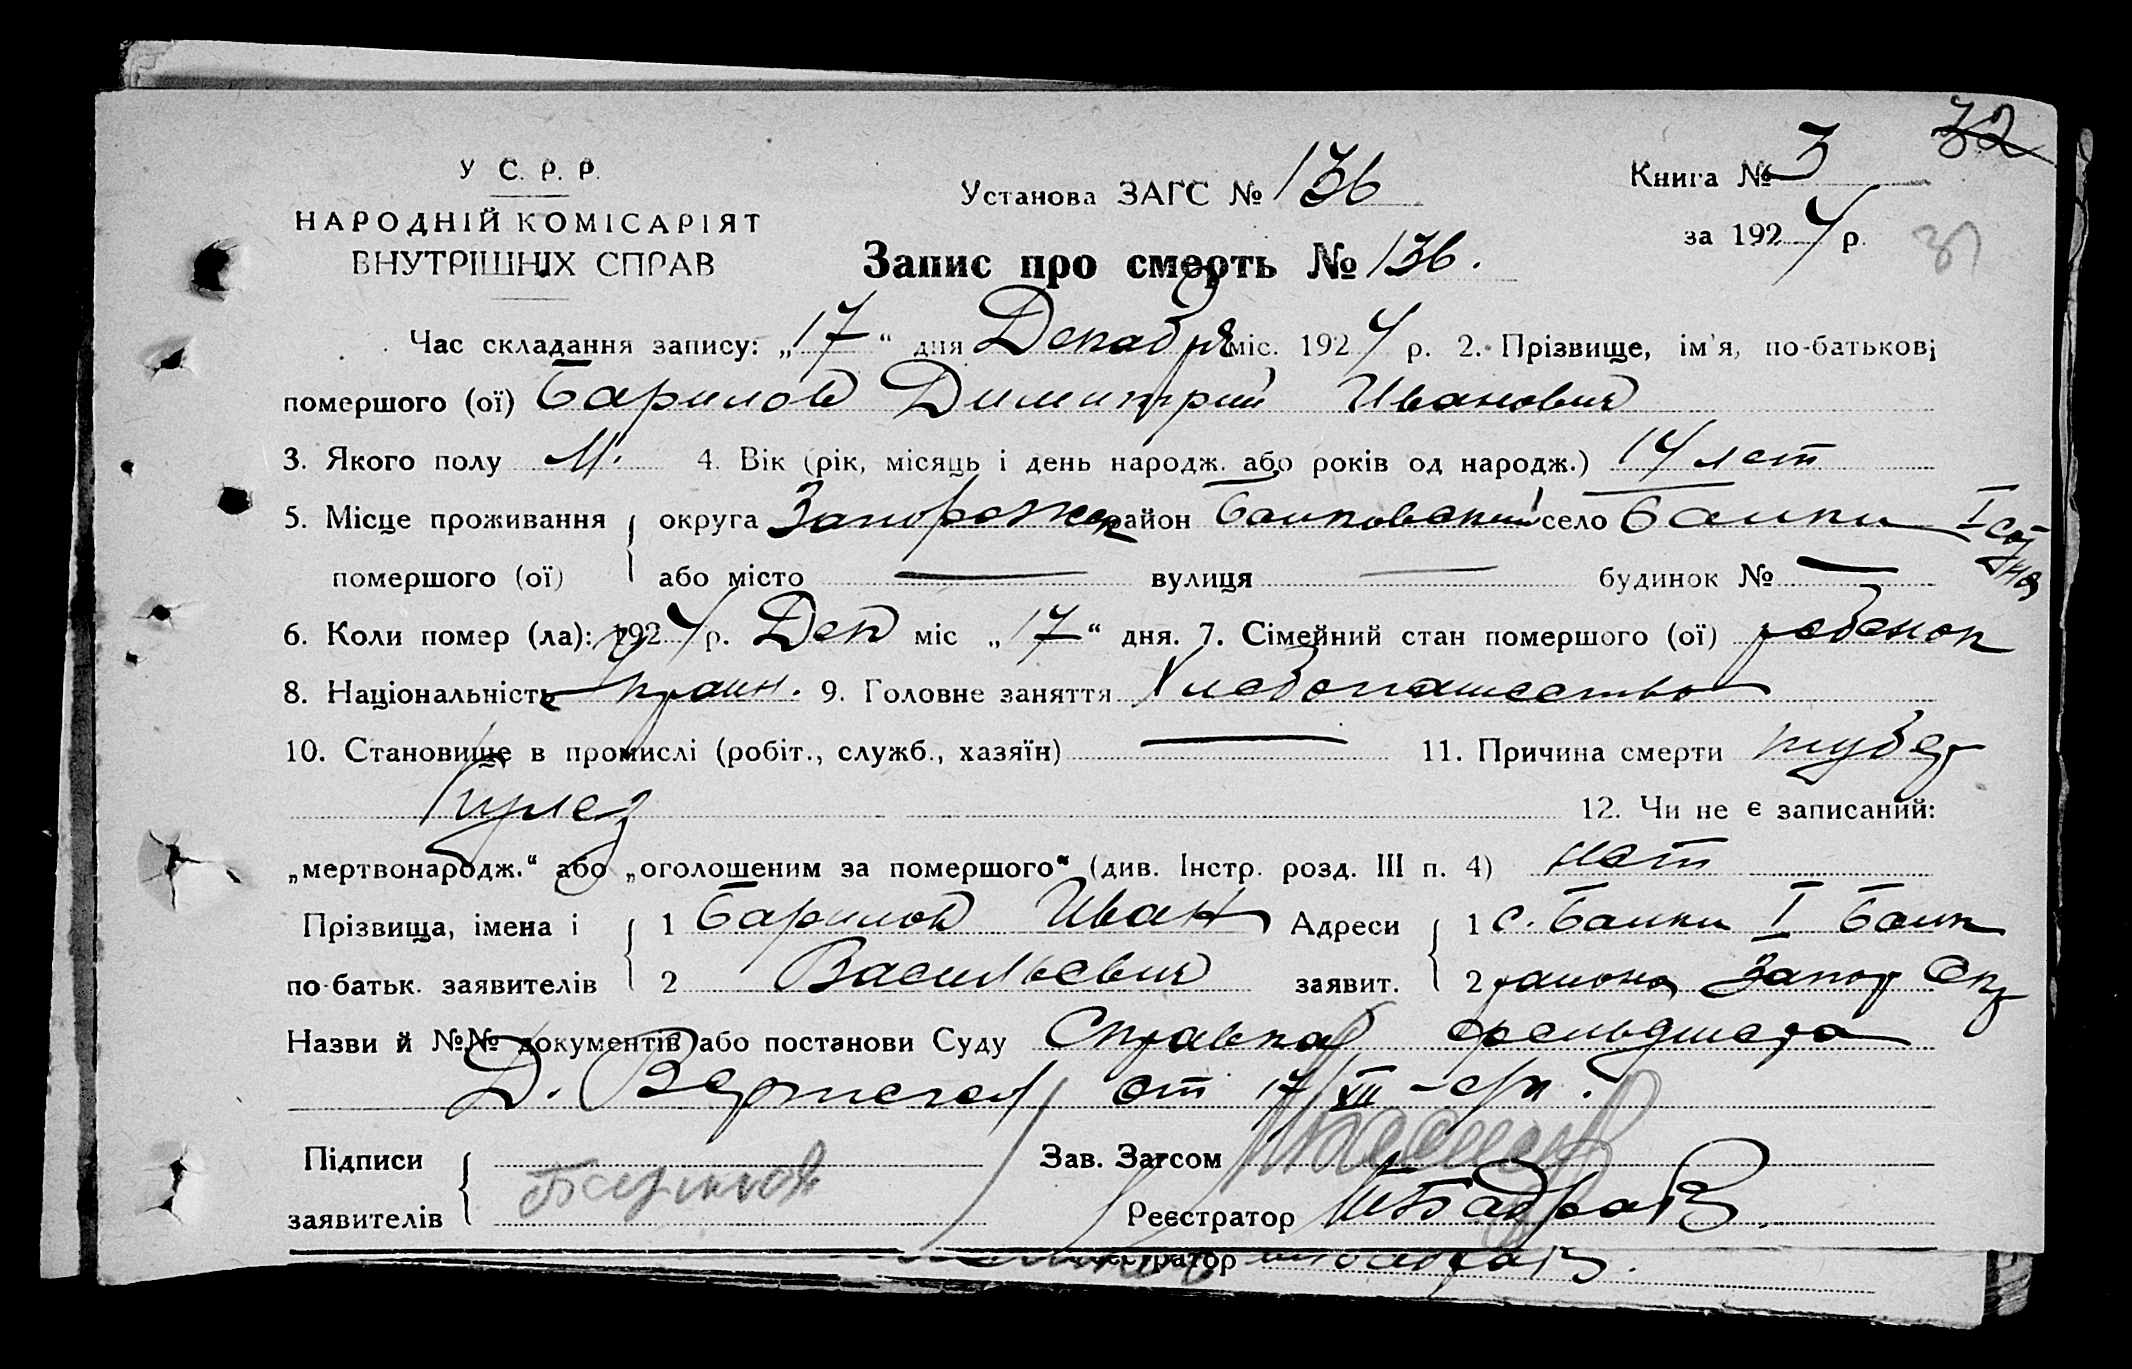 32
У С. Р. Р.
НАРОДНІЙ КОМІСАРІЯТ
ВНУТРІШНІХ СПРАВ
Установа ЗАГС № 136
Книга № 3
за 1924 р.
Запис про смерть № 136.
Час складання запису: „17“ дня Декабря міс. 1924 р. 2. Прізвище, ім'я, по-батькові
помершого (ої) Барилов Димитрий Иванович
3. Якого полу М. 4. Вік (рік, місяць і день народж. або років од народж.) 14 лет
5. Місце проживання округа Запорожск район Балковский село Балки I
помершого (ої) або місто — вулиця — будинок № —
6. Коли помер (ла): 1924 р. Дек міс „17“ дня. 7. Сімейний стан помершого (ої) ребенок
8. Національність украин. 9. Головне заняття Хлебопашество
10. Становище в промислі (робіт., служб., хазяїн) — 11. Причина смерти тубер
кулез 12. Чи не є записаний:
„мертвонародж.“ або „оголошеним за помершого“ (див. Інстр. розд. III п. 4) нет
Прізвища, імена і 1 Барилов Иван Адреси 1 с. Балки I Балк
по-батьк. заявителів 2 Васильевич заявит. 2 района Запор Окр
Назви й №№ документів або постанови Суду Справка фельдшера
Д. от 17/XII
Підписи Зав. Загсом
заявителів Барилов Реєстратор